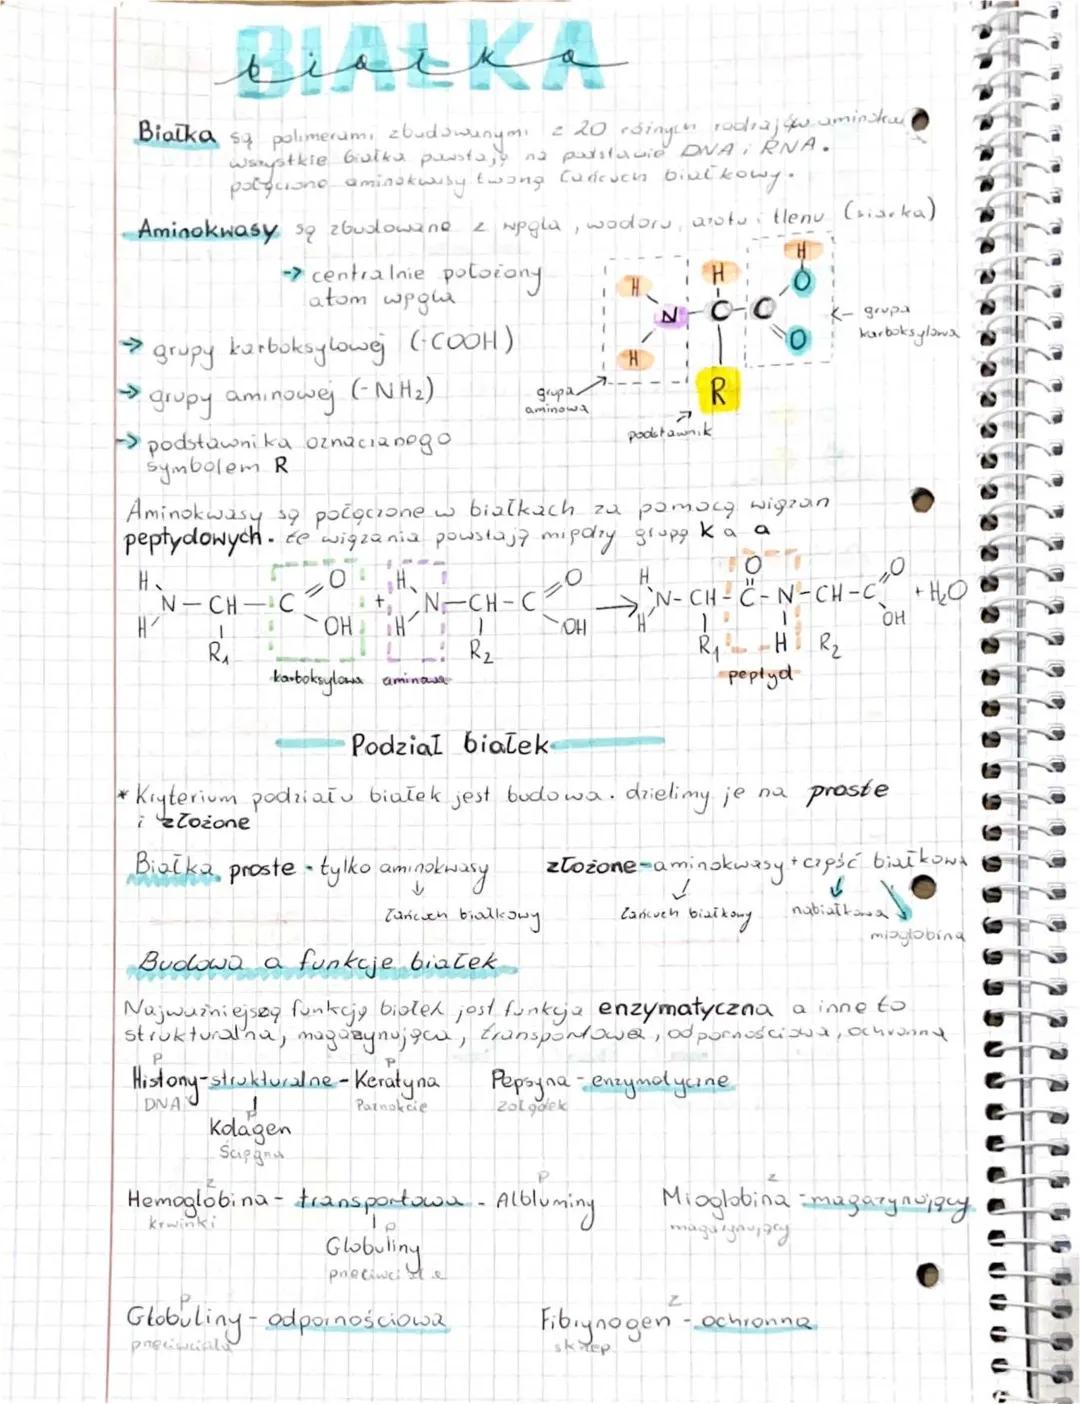 BIAŁKA
białka
Białka są polimerami zbudowanymi z 20 różnych rodzajów aminokwa
wszystkie białka powstają na podstawie DNA i RNA.
połączone aminokwasy tworzą łańcuch białkowy.
Aminokwasy są zbudowane z węgla, wodoru, azotu i tlenu (siarka)
→ centralnie położony
atom węgla
→ grupy karboksylowej (-COOH)
→ grupy aminowej (-NH2)
→ podstawnika oznaczanego
symbolem R
H H H
N - C - C O
H O
R
grupa
aminowa
podstawnik
grupa
karboksylowa
Aminokwasy są połączone w białkach za pomocą wiązań
peptydowych. te wiązania powstają między grupą K a a
H O H O H O O
N - CH - C + N - CH - C → N - CH - C - N - CH - C + H2O
H OH H OH H H OH
R1 R2 R1 R2
karboksylowa aminowa peptyd
Podział białek
* Kryterium podziału białek jest budowa. dzielimy je na proste
i złożone
Białka proste - tylko aminokwasy
łańcuch białkowy
złożone - aminokwasy + część białkowa
łańcuch białkowy niebiałkowa
mioglobina
Budowa a funkcje białek
Najważniejszą funkcją białek jest funkcja enzymatyczna a inne to
strukturalna, magazynująca, transportowa, odpornościowa, ochronna
P P
Histony - strukturalne - Keratyna Pepsyna - enzymatyczne
DNA Paznokcie żołądek
P
Kolagen
Ścięgna
Z P Z
Hemoglobina - transportowa - Albluminy Mioglobina - magazynujący
krwinki magazynujący
P
Globuliny
przeciwciała
P Z
Globuliny - odpornościowa Fibrynogen - ochronna
przeciwciała skrzep